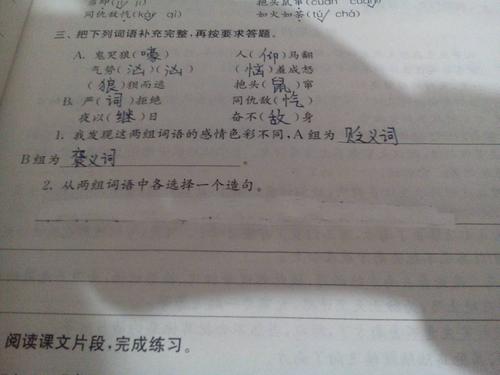 同仇敌忾(kài qì) 如火如荼(tú/chá)
三、把下列词语补充完整,再按要求答题。
A. 鬼哭狼(嚎) 人(仰)马翻
气势(汹)(汹) (恼)羞成怒
(狼)狈而逃 抱头(鼠)窜
B. 严(词)拒绝 同仇敌(忾)
夜以(继)日 奋不(敌)身
1. 我发现这两组词语的感情色彩不同,A 组为 贬义词
B 组为 褒义词 。
2. 从两组词语中各选择一个造句。
阅读课文片段,完成练习。